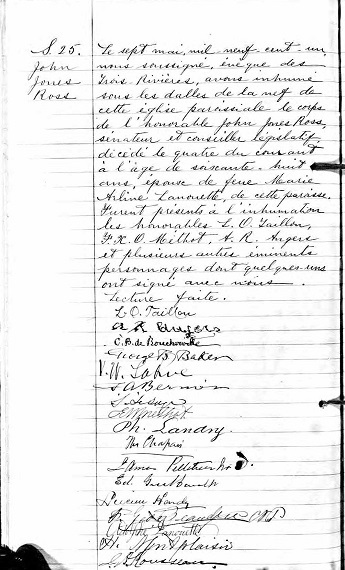 S. 25.
John
Jones
Ross
Le sept mai, mil-neuf-cent-un,
nous soussigné, évêque des
Trois-Rivières, avons inhumé
sous les dalles de la nef de
cette église paroissiale le corps
de l'honorable John Jones Ross,
sénateur et conseiller législatif,
décédé le quatre du courant
à l'âge de soixante-huit
ans, époux de feue Marie
Arline Lanouette, de cette paroisse.
Furent présents à l'inhumation
les honorables L. O. Taillon,
F. X. O. Méthot, A. R. Angers
et plusieurs autres éminents
personnages dont quelques-uns
ont signé avec nous.
Lecture faite.
L. O. Taillon
A R Angers
C. B. de Boucherville
George B Baker
V. W. Larue
Ph. Landry
Ths Chapais
Pelletier
Ed.
Landry
H. Montplaisir
Rousseau